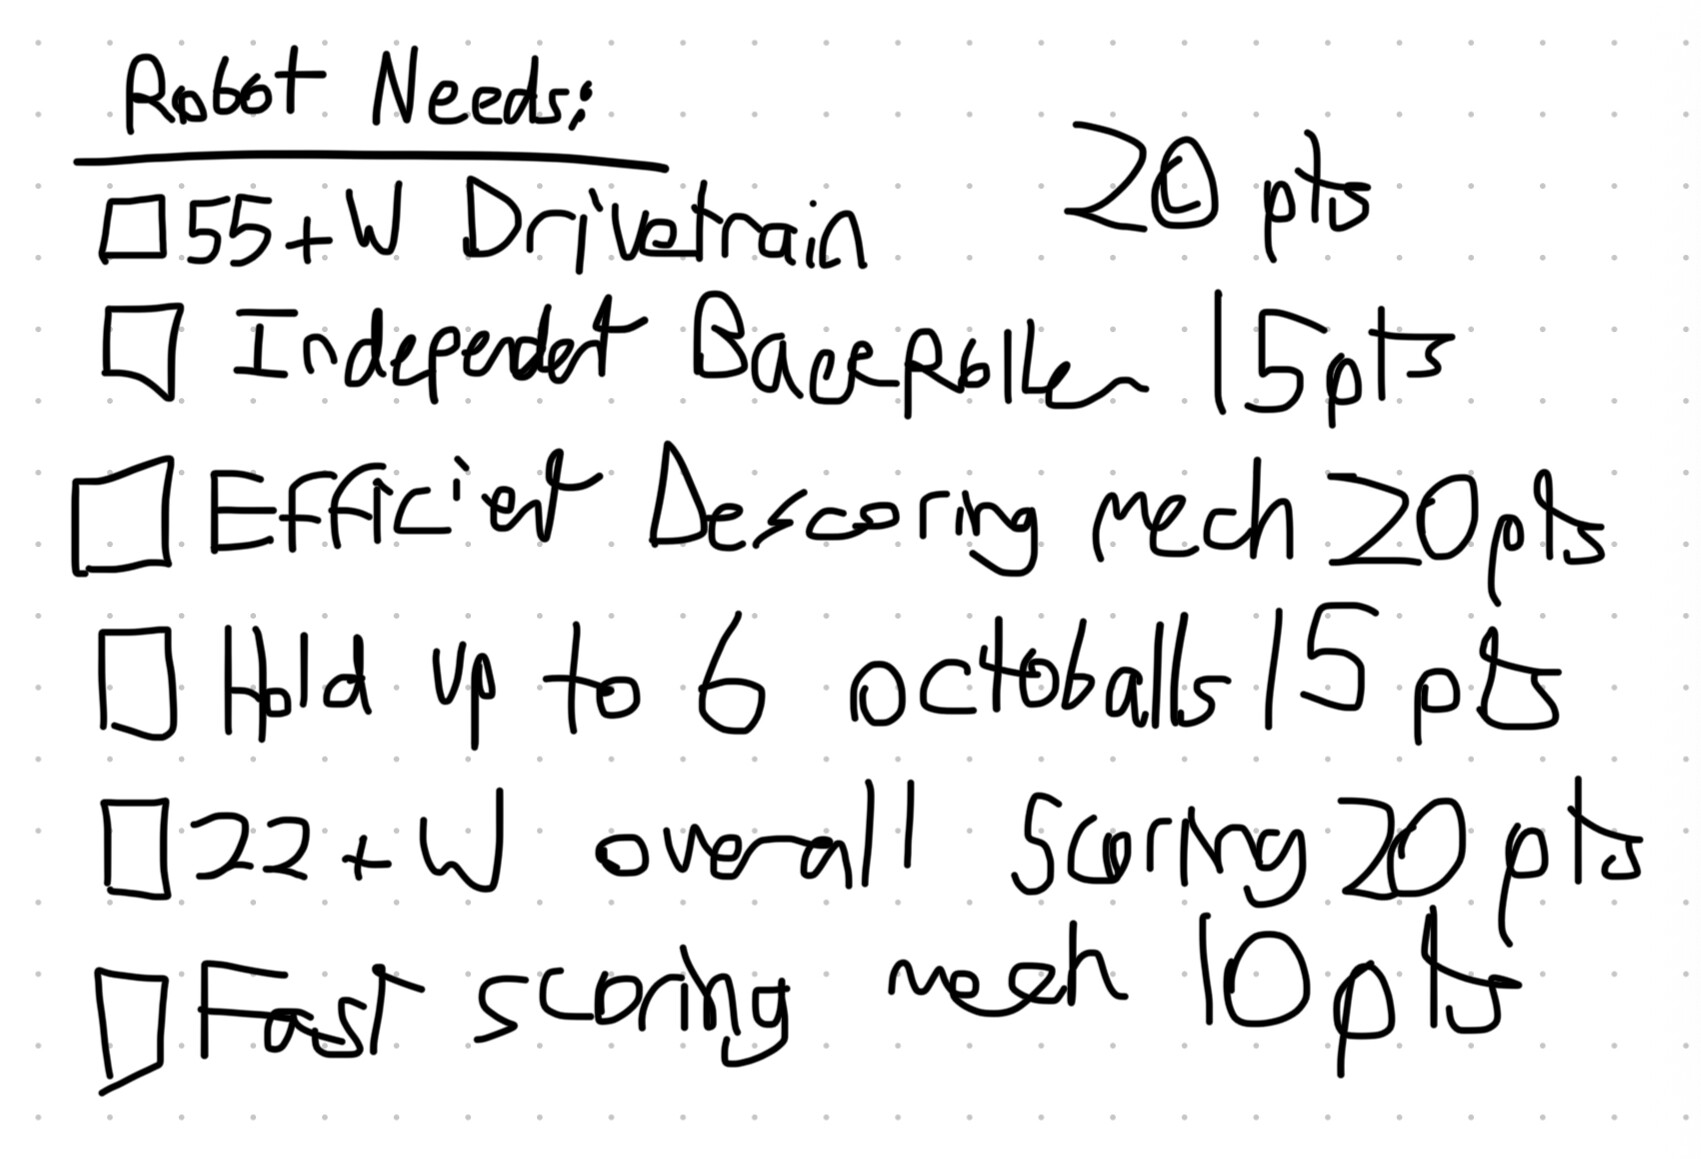 Robot Needs:
55+W Drivetrain 20 pts
Independent Back Roller 15 pts
Efficient Descoring mech 20 pts
Hold up to 6 octoballs 15 pts
22+W overall Scoring 20 pts
Fast scoring mech 10 pts